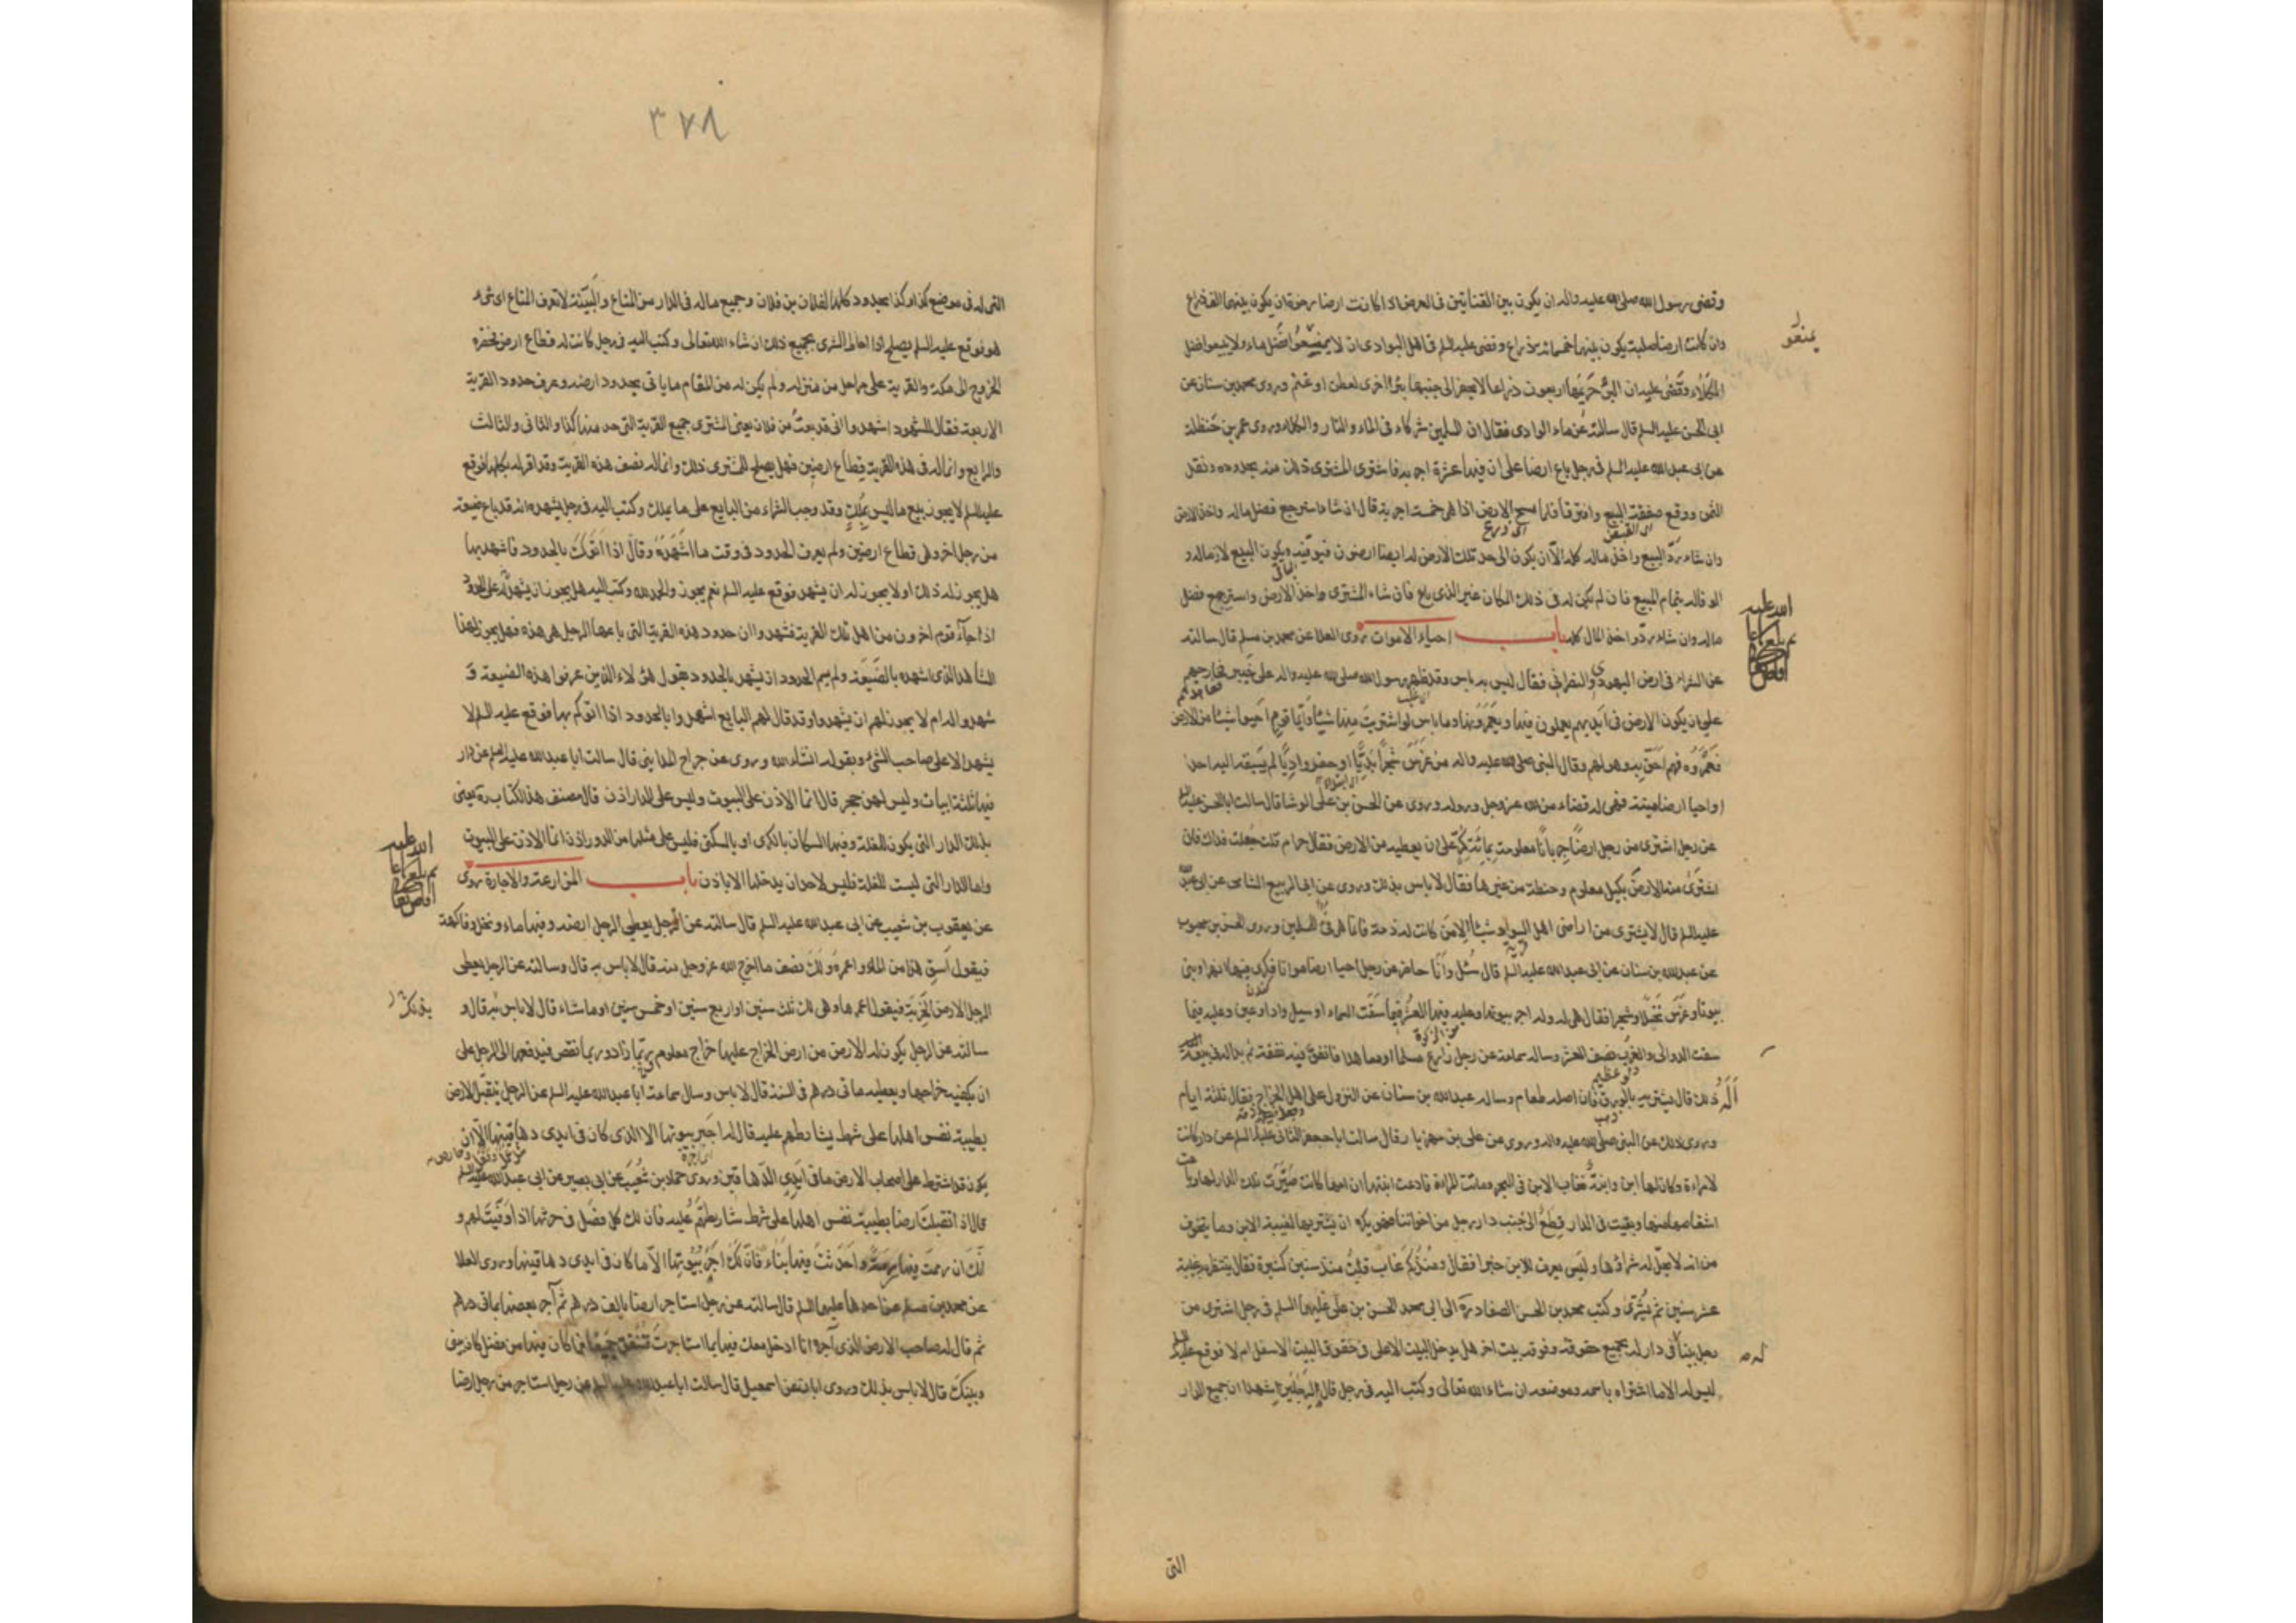 وقضى رسول الله صلى الله عليه واله ان يكون بين القناتين فى العرض اذا كانت ارضا رخوة ان يكون بينهما الف ذراع
وان كانت ارضا صلبة يكون بينهما خمسمائة ذراع وقضى عليه السلم فى اهل البوادى ان لا يمنعوا فضل ماء ولا يبيعوا فضل
الكلاء وقضى عليه ان البئر حريمها اربعون ذراعا لا يحفر الى جنبها بئر اخرى لعطن او غنم وروى محمد بن سنان عن
ابى الحسن عليه السلم قال سالته عن ماء الوادى فقال ان المسلمين شركاء فى الماء والنار والكلاء وروى عمر بن حنظلة
عن ابى عبد الله عليه السلم فى رجل باع ارضا على ان فيها عشرة اجربة فاشترى المشترى ذلك منه بحدوده ونقد
الثمن ووقع صفقة البيع وافترقا فلما مسح الارض اذا هى خمسة اجربة قال ان شاء استرجع فضل ماله واخذ الارض
وان شاء رد البيع واخذ ماله كله الا ان يكون الى حد تلك الارض له ايضا ارضون فيوفيه ويكون البيع لازما له و
الوفاء له بتمام المبيع فان لم يكن له فى ذلك المكان غير الذى باع فان شاء المشترى واخذ الارض واسترجع فضل
ماله وان شاء رد واخذ المال كله باب احياء الاموات روى العلا عن محمد بن مسلم قال سالته
عن الشراء فى ارض اليهودى والنصرانى فقال ليس به باس وقد ظهر رسول الله صلى الله عليه واله على خيبر فخارجهم
على ان يكون الارض فى ايديهم يعملون فيها ويعمرونها وما باس لو اشتريت منها شيئا وايما قوم احيوا شيئا من الارض
فعمروه فهم احق به وهو لهم وقال النبى صلى الله عليه واله من غرس شجرا بديا او حفر واديا لم يسبقه اليه احد
او احيا ارضا ميتة فهى له قضاء من الله عز وجل ورسوله وروى عن الحسن بن على الوشا قال سالت ابا الحسن عليه السلم
عن رجل اشترى من رجل ارضا جربانا معلومة بمائة كر على ان يعطيه من الارض فقال حرام قلت جعلت فداك فان
اشترى منه الارض بكيل معلوم وحنطة من غيرها فقال لا باس بذلك وروى عن ابى الربيع الشامى عن ابى عبد الله
عليه السلم قال لا يشترى من اراضى اهل السواد شيئا الا من كانت له ذمة فانما هى فئ للمسلمين وروى الحسن بن محبوب
عن عبد الله بن سنان عن ابى عبد الله عليه السلم قال سئل وانا حاضر عن رجل احيا ارضا مواتا فكرى فيها نهرا وبنى
بيوتا وغرس نخلا وشجرا فقال هى له وله اجر بيوتها وعليه فيها العشر فيما سقت السماء او سيل واد او عين وعليه فيما
سقت الدوالى والغرب نصف العشر وساله سماعة عن رجل زارع مسلما او معاهدا فانفق فيه نفقة ثم بدا له فى بيعه
اله ذلك قال يشتريه بالورق فان اصله طعام وساله عبد الله بن سنان عن النزول على اهل الخراج فقال ثلثة ايام
وروى ذلك عن النبى صلى الله عليه واله وروى عن على بن مهزيار قال سالت ابا جعفر الثانى عليه السلم عن دار كانت
لامراة وكان لها ابن وابنة فغاب الابن فى البحر وماتت المراة فادعت ابنتها ان امها كانت صيرت تلك الدار لها وباعت
اشقاصها منها وبقيت فى الدار قطع الى جنب دار رجل من اخواننا فهو يكره ان يشتريها لغيبة الابن وما يتخوف
من انه لا يحل له شراؤها وليس يعرف للابن خبرا فقال ومنذ كم غاب قلت منذ سنين كثيرة فقال ينتظر به غيبة
عشر سنين ثم يشترى وكتب محمد بن الحسن الصفار ره الى ابى محمد الحسن بن على عليهما السلم فى رجل اشترى من
رجل بيتا فى دار له بجميع حقوقه وفوقه بيت اخر هل يدخل البيت الاعلى فى حقوق البيت الاسفل ام لا فوقع عليه السلم
ليس له الا ما اشتراه باسمه وموضعه ان شاء الله تعالى وكتب اليه فى رجل قال لرجلين اشهدا ان جميع الدار
التى
٣٧٨
التى له فى موضع كذا وكذا بحدود كلها لفلان بن فلان وجميع ماله فى الدار من المتاع والبينة لا تعرف المتاع اى شئ
هو فوقع عليه السلم يصلح اذا احاط الشرى بجميع ذلك ان شاء الله تعالى وكتب اليه فى رجل كانت له قطاع ارض فحضره
الخروج الى مكة والقرية على مراحل من منزله ولم يكن له من المقام ما ياتى بحدود ارضه وعرف حدود القرية
الاربعة فقال للشهود اشهدوا انى قد بعت من فلان يعنى المشترى جميع القرية التى حد منها كذا والثانى والثالث
والرابع وانما له فى هذه القرية قطاع ارضين فهل يصلح للمشترى ذلك وانما له نصف هذه القرية وقد اقر له بكلها فوقع
عليه السلم لا يجوز بيع ما ليس بملك وقد وجب الشراء من البايع على ما يملك وكتب اليه فى رجل يشهده انه قد باع ضيعته
من رجل اخر وهى قطاع ارضين ولم يعرف الحدود فى وقت ما اشهده وقال اذا اتوك بالحدود فاشهد بها
هل يجوز له ذلك او لا يجوز له ان يشهد فوقع عليه السلم نعم يجوز والحمد لله وكتب اليه هل يجوز ان يشهد له على الحدود
اذا جاء قوم اخرون من اهل تلك القرية فشهدوا ان حدود هذه القرية التى باعها الرجل هى هذه فهل يجوز لهذا
الشاهد الذى اشهده بالضيعة ولم يسم الحدود ان يشهد بالحدود بقول هؤلاء الذين عرفوا هذه الضيعة و
شهدوا له ام لا يجوز لهم ان يشهدوا وقد قال لهم البايع اشهدوا بالحدود اذا اتوكم بها فوقع عليه السلم لا
يشهد الا على صاحب الشئ وبقوله انشاء الله وروى عن جراح المداينى قال سالت ابا عبد الله عليه السلم عن دار
فيها ثلثة ابيات وليس لهن حجر قال انما الاذن على البيوت وليس على الدار اذن قال مصنف هذا الكتاب ره يعنى
بذلك الدار التى يكون للغلة وفيها السكان بالكرى او بالسكنى فليس على مثلها من الدور اذن انما الاذن على البيوت
واما الدار التى ليست للغلة فليس لاحد ان يدخلها الا باذن باب المزارعة والاجارة روى
عن يعقوب بن شعيب عن ابى عبد الله عليه السلم قال سالته عن الرجل يعطى الرجل ارضه وفيها ماء ونخل وفاكهة
فيقول اسق هذا من الماء واعمره ولك نصف ما اخرج الله عز وجل منه قال لا باس به قال وسالته عن الرجل يعطى
الرجل الارض الخربة فيقول اعمرها وهى لك ثلث سنين او اربع سنين او خمس سنين او ما شاء قال لا باس به قال و
سالته عن الرجل يكون له الارض من ارض الخراج عليها خراج معلوم ربما زاد وربما نقص فيدفعها الى الرجل على
ان يكفيه خراجها ويعطيه مائتى درهم فى السنة قال لا باس وسال سماعة ابا عبد الله عليه السلم عن الرجل يتقبل الارض
بطيبة نفس اهلها على شرط يشارطهم عليه قال له اجر بيوتها الا الذى كان فى ايدى دهاقينها الا ان
يكون قد اشترط على اصحاب الارض ما فى ايدى الدهاقين وروى حماد بن شعيب عن ابى بصير عن ابى عبد الله عليه السلم
قال اذا تقبلت ارضا بطيبة نفس اهلها على شرط شارطتهم عليه فان لك كل فضل فى حرثها اذا وفيت لهم و
انك ان رممت فيها مرمة واحدثت فيها بناء فان لك اجر بيوتها الا ما كان فى ايدى دهاقينها وروى العلا
عن محمد بن مسلم عن احدهما عليهما السلم قال سالته عن رجل استاجر ارضا بالف درهم ثم آجر بعضها بمائتى درهم
ثم قال له صاحب الارض الذى آجره انا ادخل معك فيها بما استاجرت فننفق جميعا فما كان فيها من فضل كان بينى
وبينك قال لا باس بذلك وروى ابان عن اسمعيل قال سالت ابا عبد الله عليه السلم عن رجل استاجر من رجل ارضا